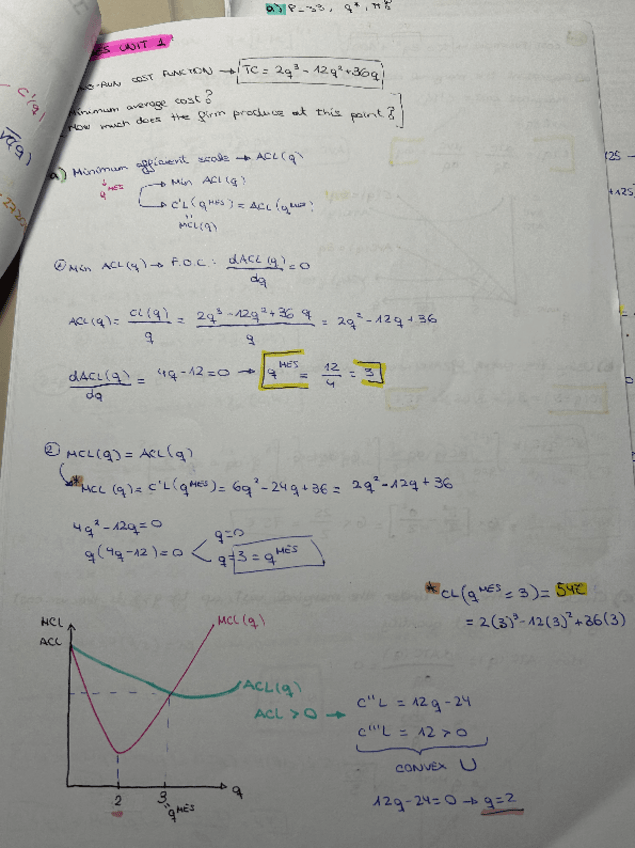 a) P=33, q*, π?
MES UNIT 1
RUN COST FUNCTION → TC = 2q³ - 12q² + 36q
Minimum average cost?
How much does the firm produce at this point?
C'(q)
a) Minimum efficient scale → ACL(q)
q^MES
→ Min ACL(q)
→ C'L(q^MES) = ACL(q^MES)
MCL(q)
① Min ACL(q) → F.O.C.: dACL(q)/dq = 0
ACL(q) = CL(q)/q = 2q³ - 12q² + 36q/q = 2q² - 12q + 36
dACL(q)/dq = 4q - 12 = 0 → q^MES = 12/4 = 3
② MCL(q) = ACL(q)
* MCL(q) = C'L(q^MES) = 6q² - 24q + 36 = 2q² - 12q + 36
4q² - 12q = 0
q(4q - 12) = 0 < q=0
q=3 = q^MES
* CL(q^MES = 3) = 54€
= 2(3)³ - 12(3)² + 36(3)
MCL
ACL
MCL(q)
ACL(q)
ACL > 0 →
2 3 q
q^MES
C''L = 12q - 24
C'''L = 12 > 0
CONVEX U
12q - 24 = 0 → q = 2